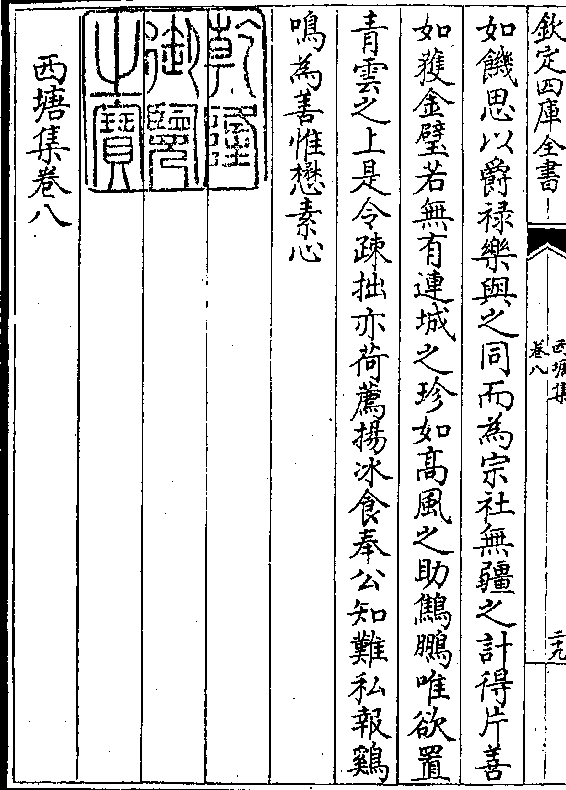 欽定四庫全書
西塘集
卷八
二十九
如饑思以爵祿樂與之同而為宗社無疆之計得片善
如獲金璧若無有連城之珍如髙風之助鷦鵬唯欲置
青雲之上是令疎拙亦荷薦揚冰食奉公知難私報鷄
鳴為善惟懋素心
乾隆
御覽
之寶
西塘集卷八